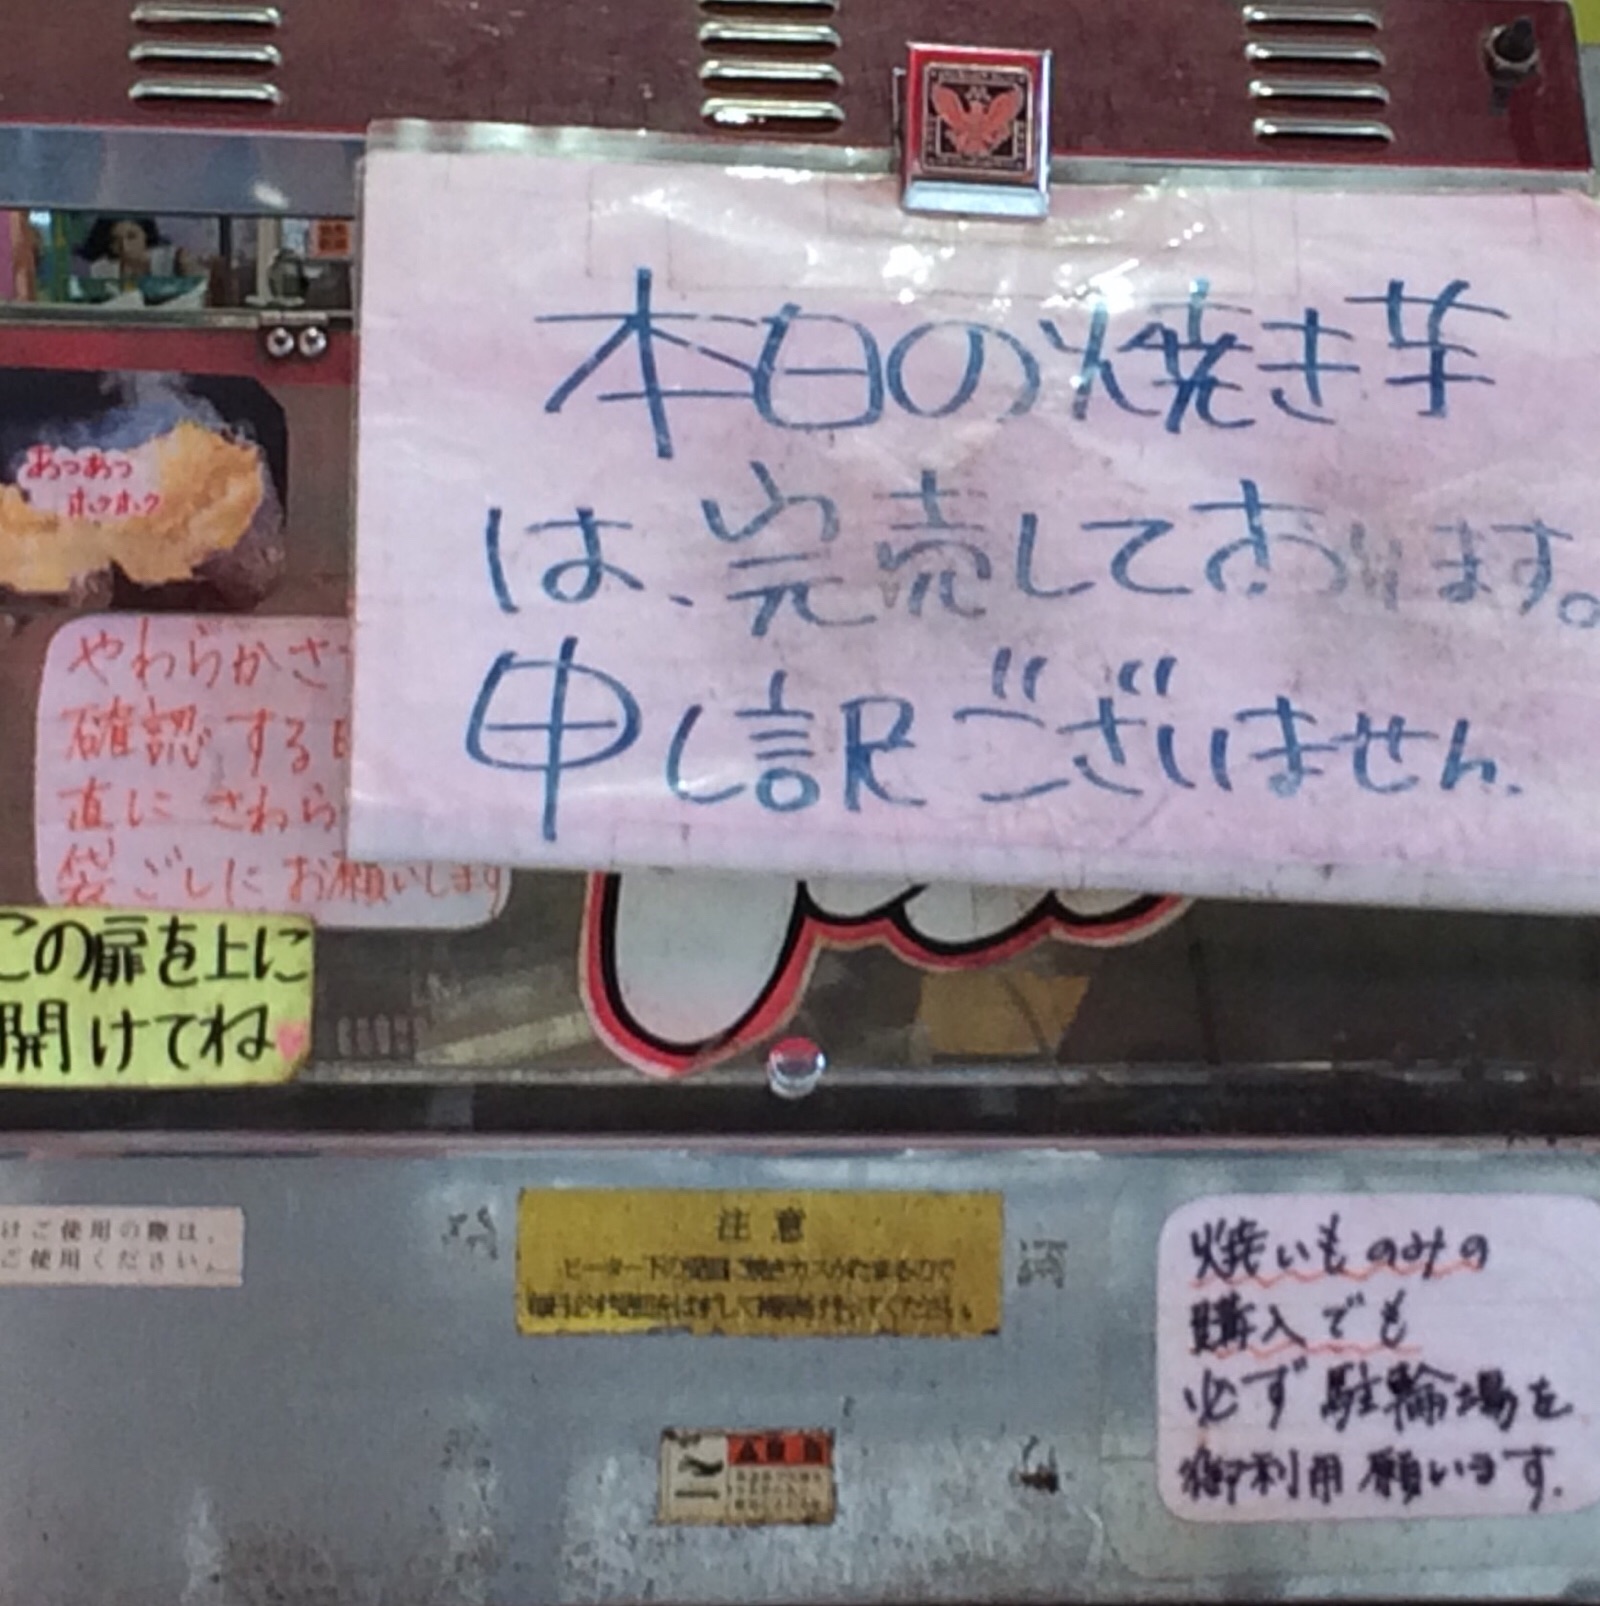 本日の焼き芋
は、完売しております。
申し訳ございません.
あつあつ
ホクホク
やわらかさ
確認する
直に さわら
袋ごしにお願いします
この扉を上に
開けてね
はご使用の際は、
ご使用ください。
注意
焼いものみの
購入でも
必ず駐輪場を
御利用願います.